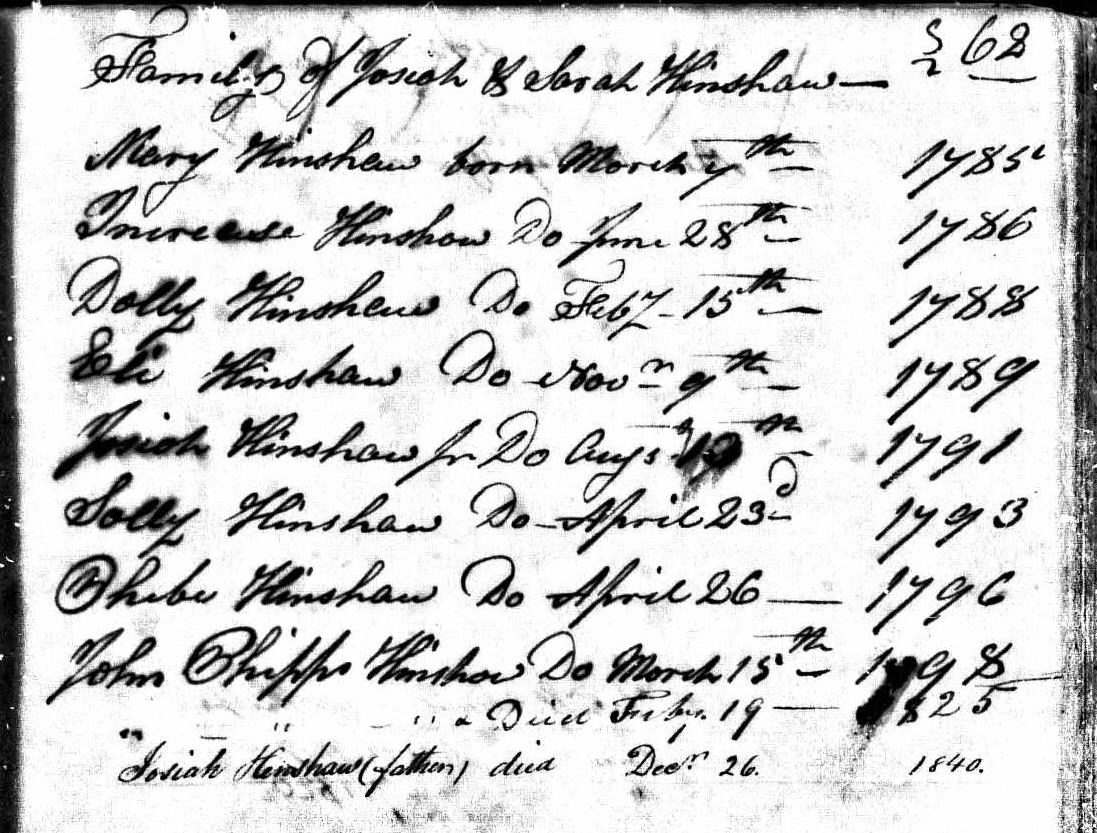 62
Family of Josiah & Sarah Hinshaw —
Mary Hinshaw born March 7th — 1785
Increase Hinshaw Do June 28th — 1786
Dolly Hinshaw Do Feby 15th — 1788
Eli Hinshaw Do Novr 9th — 1789
Josiah Hinshaw Jr Do Augst 1791
Solly Hinshaw Do April 23d 1793
Phebe Hinshaw Do April 26 — 1796
John Phipps Hinshaw Do March 15th — 1798
" " " " Died Feby. 19 — 1825
Josiah Hinshaw (father) died Decr 26. 1840.